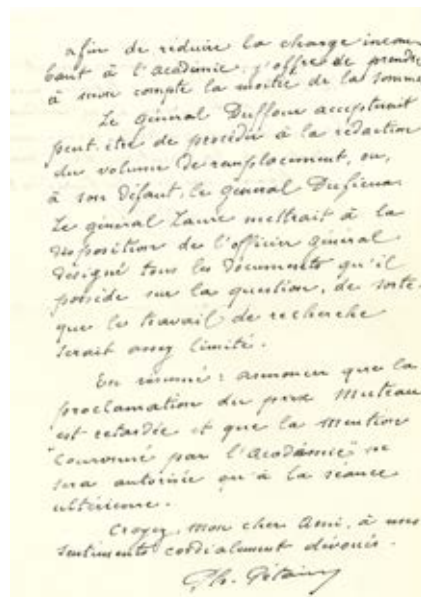 afin de réduire la charge incom-
bant à l'Académie, j'offre de prendre
à mon compte la moitié de la somme
Le général Duffour accepterait
peut-être de procéder à la rédaction
du volume de remplacement, ou,
à son défaut, le général Dufieux.
Le général Laure mettrait à la
disposition de l'officier général
désigné tous les documents qu'il
possède sur la question, de sorte
que le travail de recherche
serait assez limité.
En résumé : annoncer que la
proclamation du prix Muteau
est retardée et que la mention
"Couronné par l'Académie" ne
sera autorisée qu'à la séance
ultérieure.
Croyez, mon cher Ami, à mes
sentiments cordialement dévoués.
Ph. Pétain